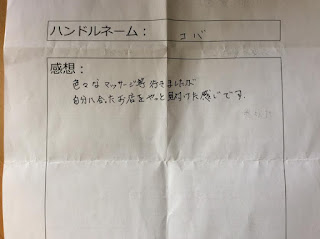 ハンドルネーム： コバ
感想：
色々なマッサージ等行きましたが
自分に合ったお店をやっと見付けた感じです.